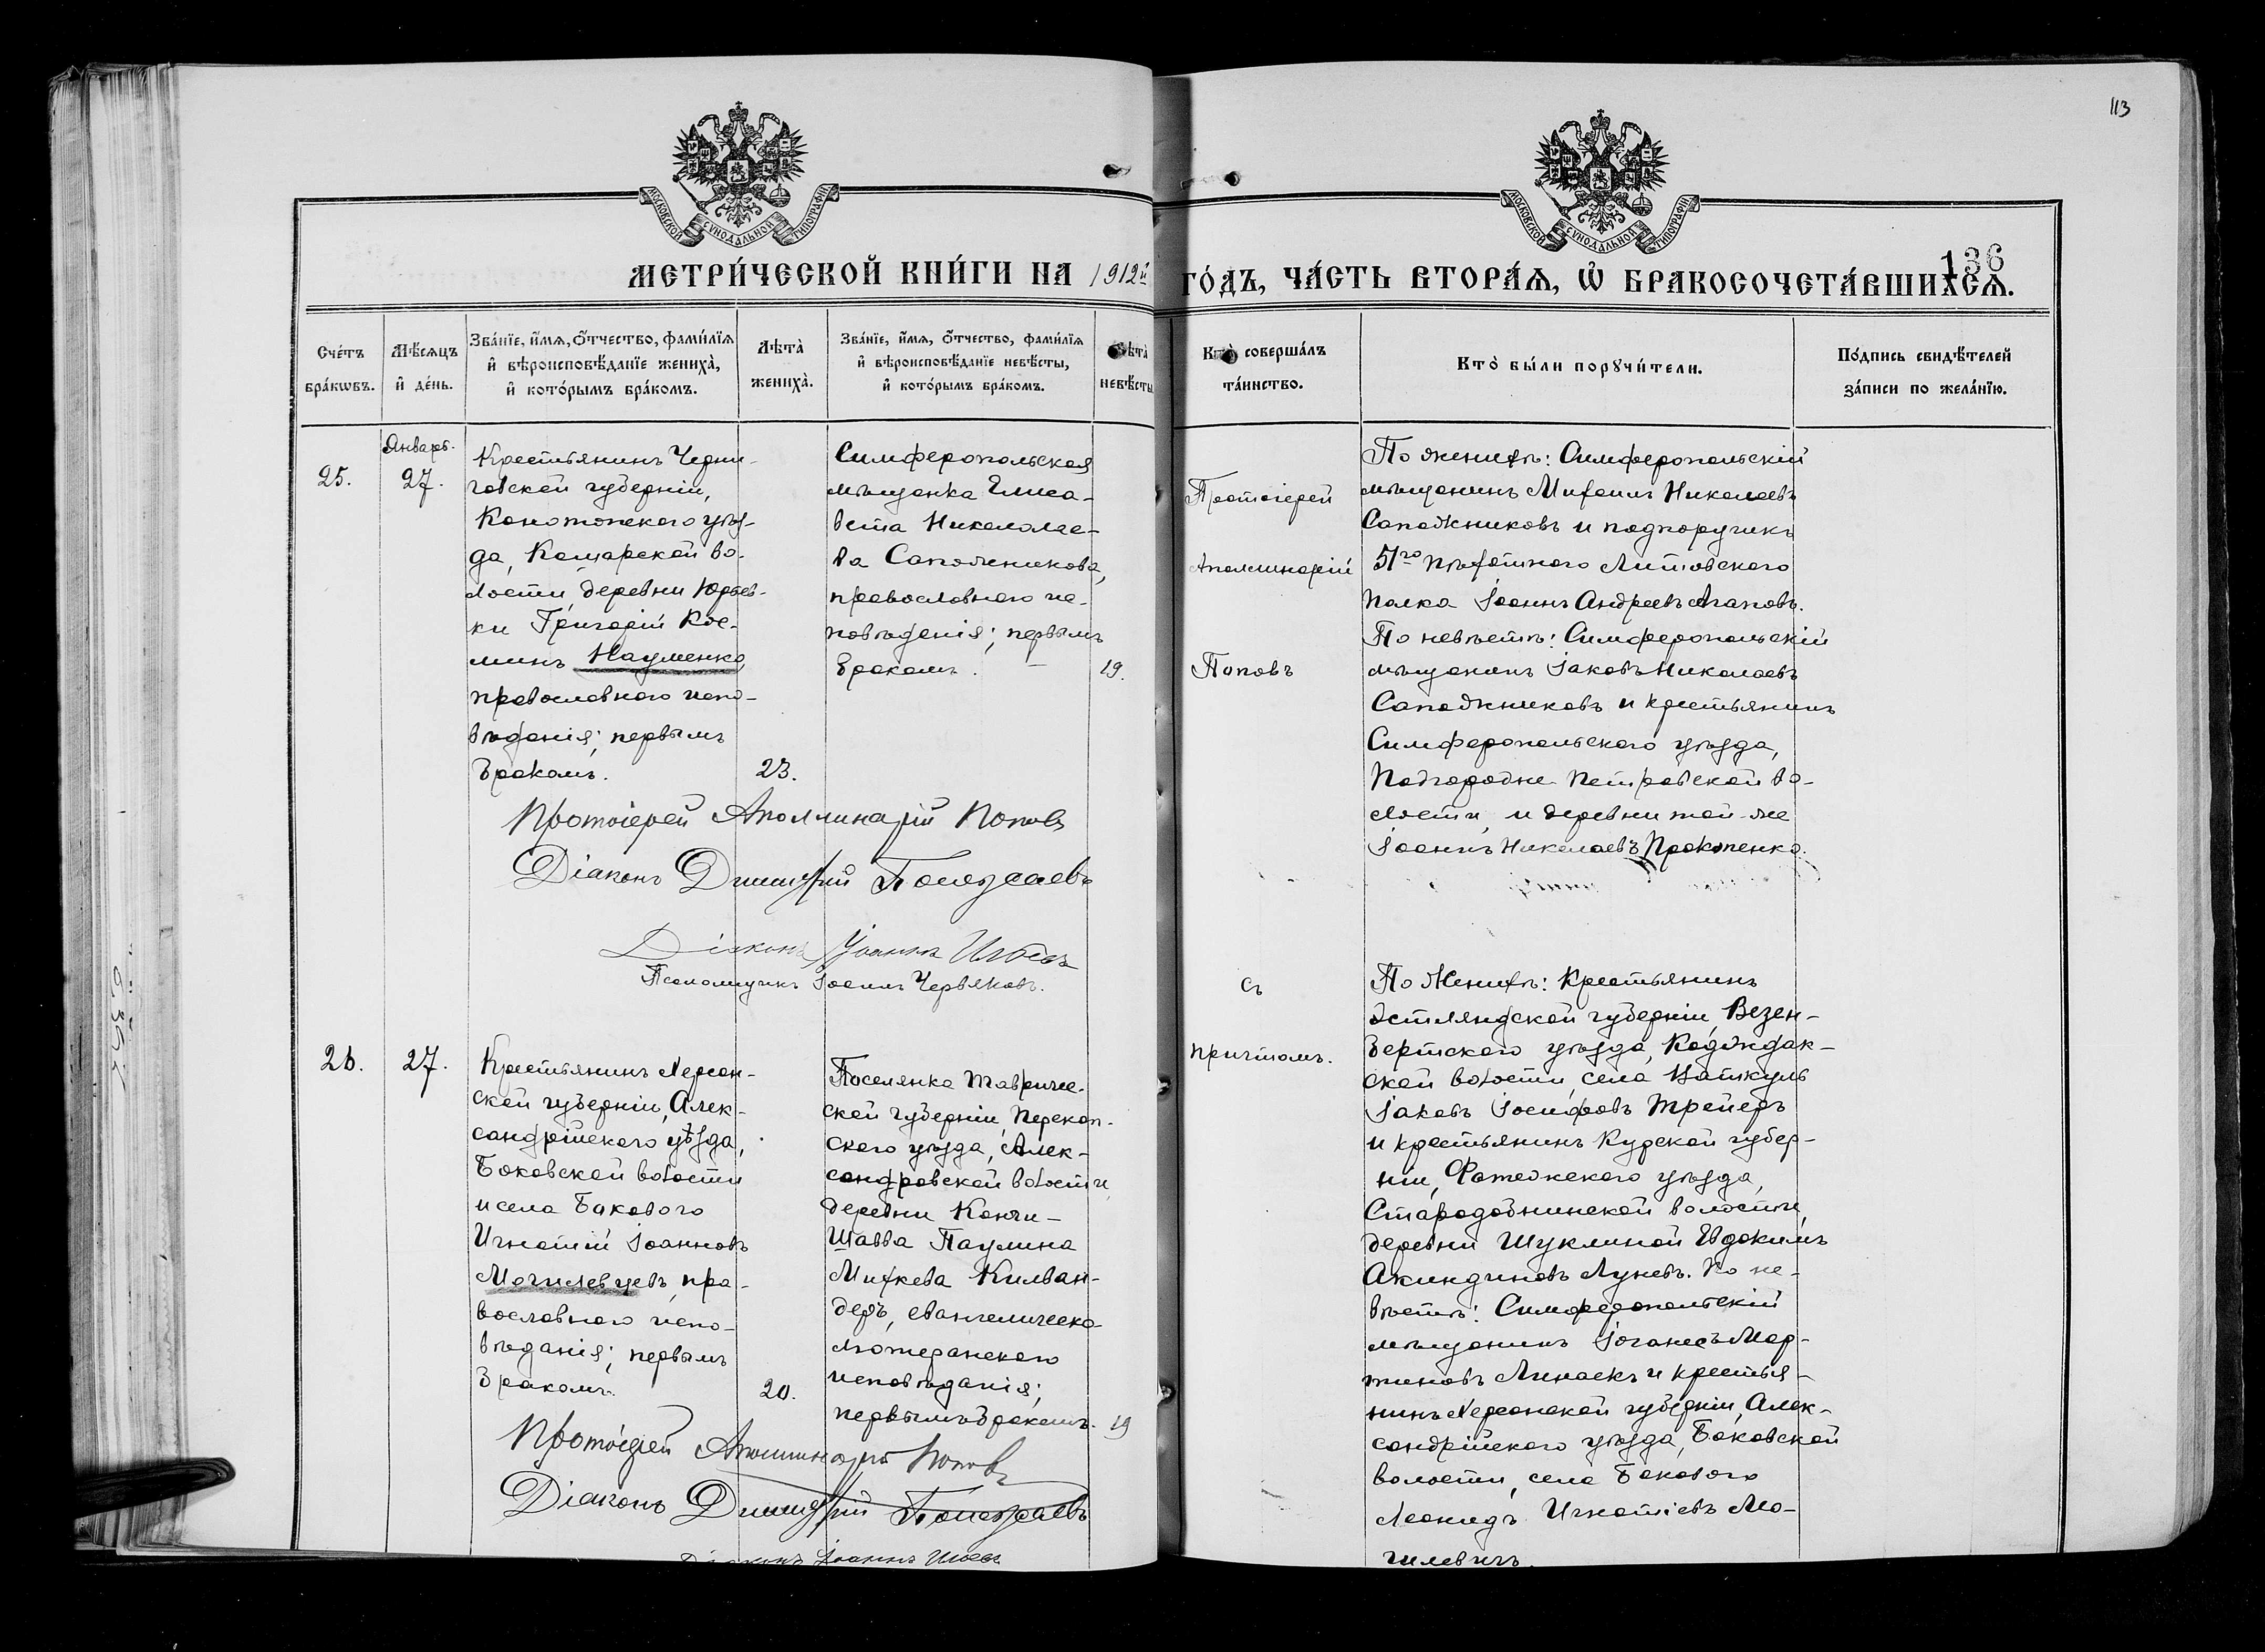 113
МОСКОВСКОЙ СѴНОДАЛЬНОЙ ТИПОГРАФІИ
МОСКОВСКОЙ СѴНОДАЛЬНОЙ ТИПОГРАФІИ
136
МЕТРИ́ЧЕСКОЙ КНИ́ГИ НА 1912й ГО́ДЪ, ЧА́СТЬ ВТОРА́Я, Ѡ҆ БРАКОСОЧЕТА́ВШИХСЯ.
Сче́тъ
бра́кѡвъ.
Мѣ́сяцъ
и҆ де́нь.
Зва́нїе, и҆́мя, ѻ҆́тчество, фами́лїя
и҆ вѣроисповѣ́данїе жениха̀,
и҆ кото́рымъ бра́комъ.
Лѣта̀
жениха̀.
Зва́нїе, и҆́мя, ѻ҆́тчество, фами́лїя
и҆ вѣроисповѣ́данїе невѣ́сты,
и҆ кото́рымъ бра́комъ.
Лѣта̀
невѣ́сты
Кто̀ соверша́лъ
та́инство.
Кто̀ бы́ли порꙋчи́тели.
По́дпись свидѣ́телей
за́писи по жела́нїю.
Январь.
25.
27.
Крестьянинъ Черни-
говской губерніи,
Конотопского уѣз-
да, Кошарской во-
лости, деревни Юрьев-
ки Григорій Кос-
минъ Науменко,
православного испо-
вѣданія; первымъ
бракомъ.
23.
Симферопольская
мѣщанка Елиса-
вета Николае-
ва Сапожникова,
православного ис-
повѣданія; первымъ
бракомъ. —
19.
Протоіерей
Аполлинарій
Поповъ
По женихѣ: Симферопольскій
мѣщанинъ Михаилъ Николаевъ
Сапожниковъ и подпоручикъ
51го пѣхотного Литовского
полка Іоаннъ Андреевъ Агаповъ.
По невѣстѣ: Симферопольскій
мѣщанинъ Іаковъ Николаевъ
Сапожниковъ и крестьянинъ
Симферопольского уѣзда,
Подгородне-Петровской во-
лости, и деревни той-же
Іоаннъ Николаевъ Прокопенко.
Протоіерей Аполлинарій Поповъ
Діаконъ Димитрій Полежаевъ
Діаконъ Іоаннъ
Псаломщикъ Іосифъ Червяковъ.
26.
27.
Крестьянинъ Херсон-
ской губерніи, Алек-
сандрійского уѣзда,
Боковской волости
и села Бокового
Игнатій Іоанновъ
Могилевцевъ, пра-
вославного испо-
вѣданія; первымъ
бракомъ.
20.
Поселянка Тавриче-
ской губерніи, Перекоп-
ского уѣзда, Алек-
сандровской волости,
деревни Кончи-
Шавва Паулина
Михкева Килван-
деръ, евангелическо-
лютеранского
исповѣданія;
первымъ бракомъ.
19
съ
причтомъ.
По Женихѣ: Крестьянинъ
Эстляндской губерніи, Везен-
бергского уѣзда, Кодждак-
ской волости, села
Іаковъ Іосифовъ Трейеръ
и крестьянинъ Курской губер-
ніи, Фатежского уѣзда,
волости,
деревни Шуклиной Евдокимъ
Акиндиновъ Луневъ. По не-
вѣстѣ: Симферопольскій
мѣщанинъ Іоганесъ Мар-
тиновъ и крестья-
нинъ Херсонской губерніи, Алек-
сандрійского уѣзда, Боковской
волости, села Бокового
Леонидъ Игнатіевъ Мо-
гилевичъ.
Протоіерей Аполлинарій Поповъ
Діаконъ Димитрій Полежаевъ
Діаконъ Іоаннъ